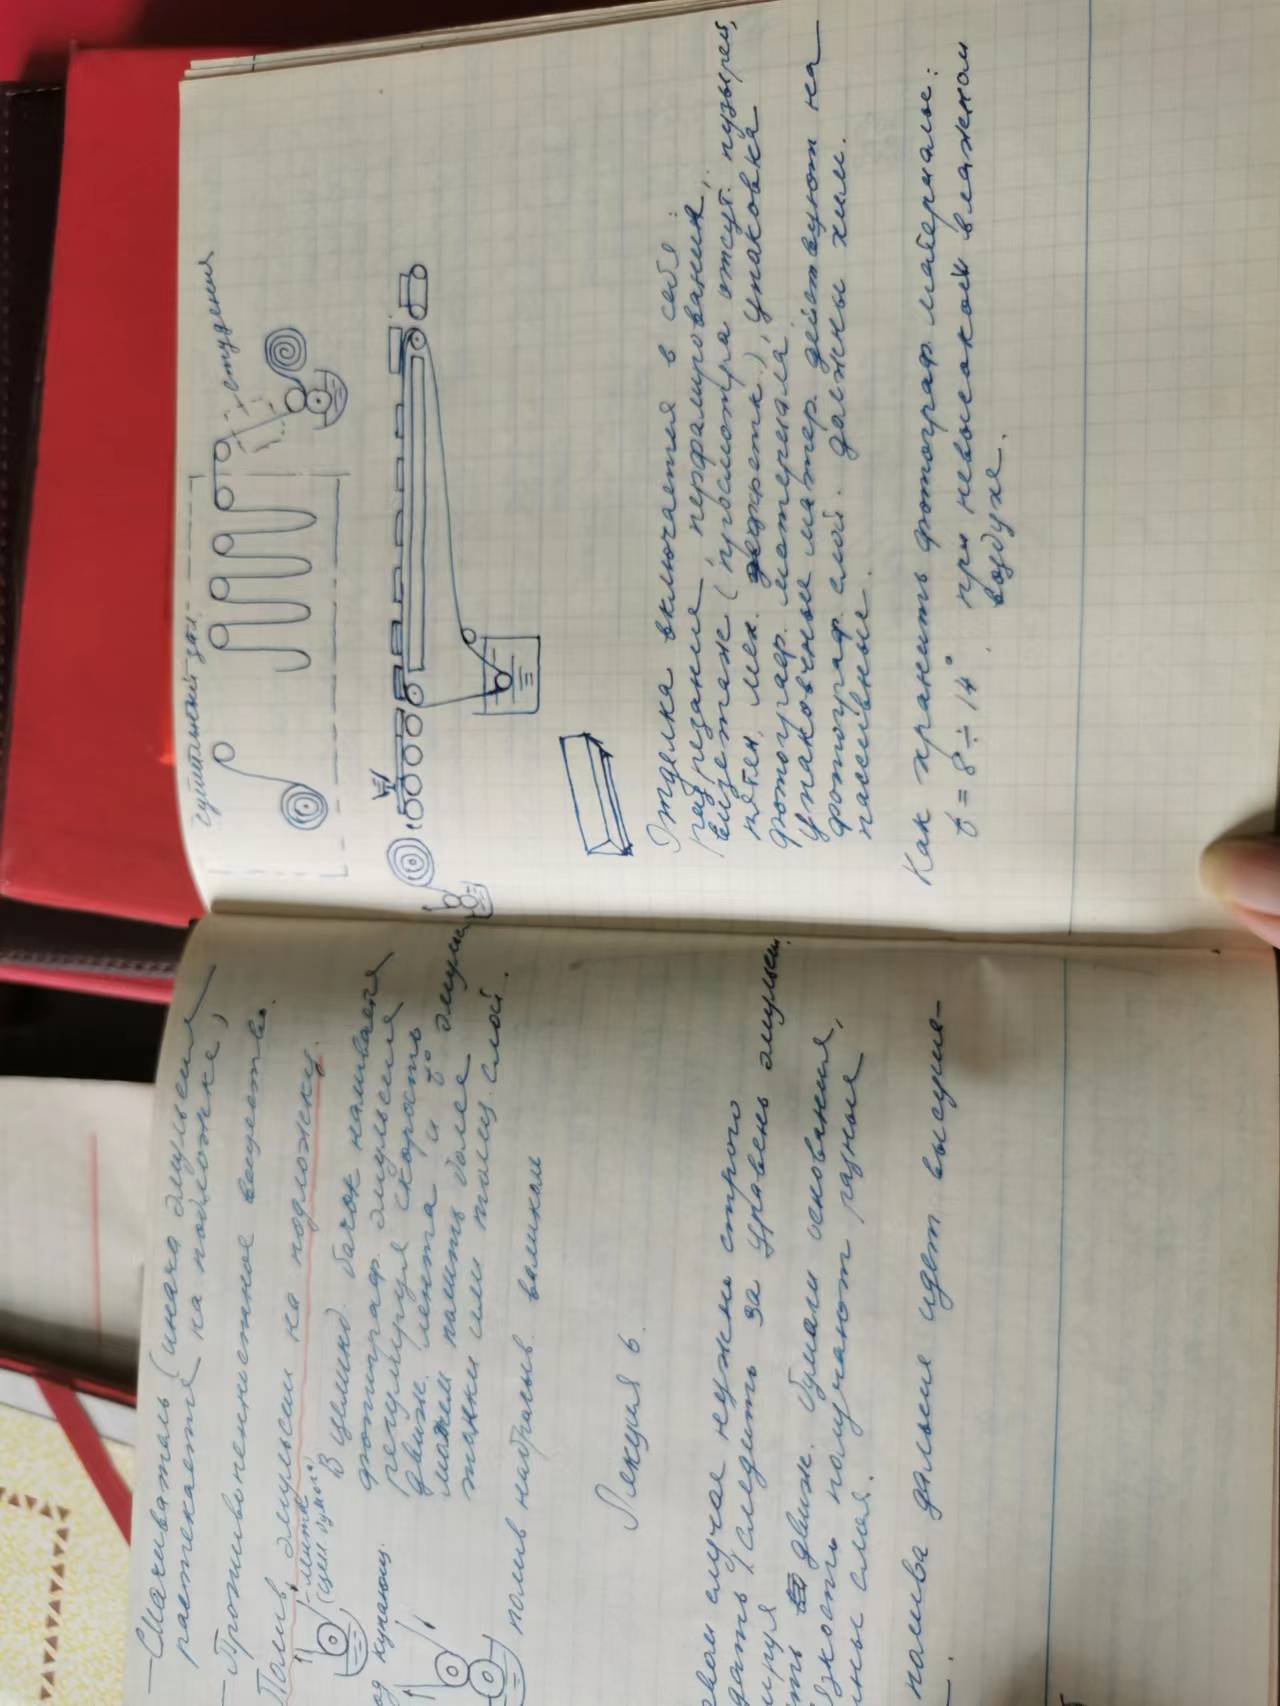 — Смачиватель (иначе эмульсия
растекается на подложке,
— Противопенистное вещество.
Полив эмульсии на подложку.
В цилинд. бачок наливается
фотограф. эмульсия
регулируя скорость
движ. лента и t° эмульс
можем полить более
тонки или толщ. слой.
купающ.
полив набрасыв. валиком
Лекция 6.
случае нужно строго
следить за уравень эмульсии.
движ. бумаги основания,
получают разные
слоя.
полива дальше идет высуше-
сушильный
студения
Отделка включается в себя:
разрезание, перфамирование,
(просмотра отсут. пузырей,
пятен, мек. ), упаковка
фотограф. материала.
Упаковочные матер. действуют на
фотограф. слой. должны хим.
пассивные.
Как хранить фотограф. материалы:
t = 8 ÷ 14° при невысокой влажном
воздухе.